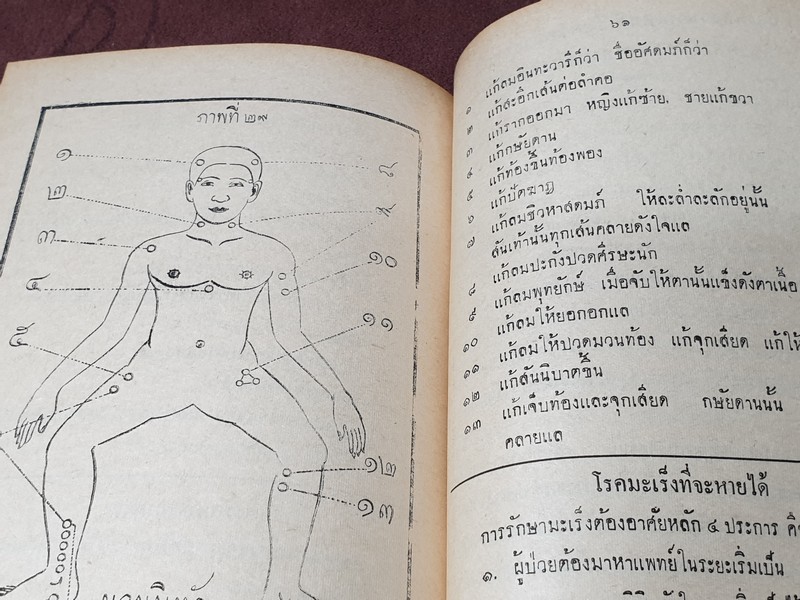 ภาพที่ ๒๙
๑
๒
๓
๔
๕
๘
๙
๑๐
๑๑
๑๒
๑๓
๖๑
แก้ลมอินทะวารีก็ว่า ชื่ออัศดมภ์ก็ว่า
๑ แก้สะอึกเส้นต่อลำคอ
๒ แก้รากออกมา หญิงแก้ซ้าย, ชายแก้ขวา
๓ แก้กษัยดาน
๔ แก้ท้องขึ้นท้องพอง
๕ แก้ปัตฆาฏ
๖ แก้ลมชิวหาสดมภ์ ให้ละล่ำละลักอยู่นั้น
๗ ส้นเท้านั้นทุกเส้นคลายดังใจแล
แก้ลมปะกังปวดศีรษะนัก
๘ แก้ลมพุทยักษ์ เมื่อจับให้ตานั้นแข็งดังตาเนื้อ
๙ แก้ลมให้ยอกอกแล
๑๐ แก้ลมให้ปวดมวนท้อง แก้จุกเสียด แก้ให้
๑๑ แก้สันนิบาตชัน
๑๒ แก้เจ็บท้องและจุกเสียด กษัยดานนั้น
๑๓ คลายแล
โรคมะเร็งที่จะหายได้
การรักษามะเร็งต้องอาศัยหลัก ๔ ประการ คือ
๑. ผู้ป่วยต้องมาหาแพทย์ในระยะเริ่มเป็น